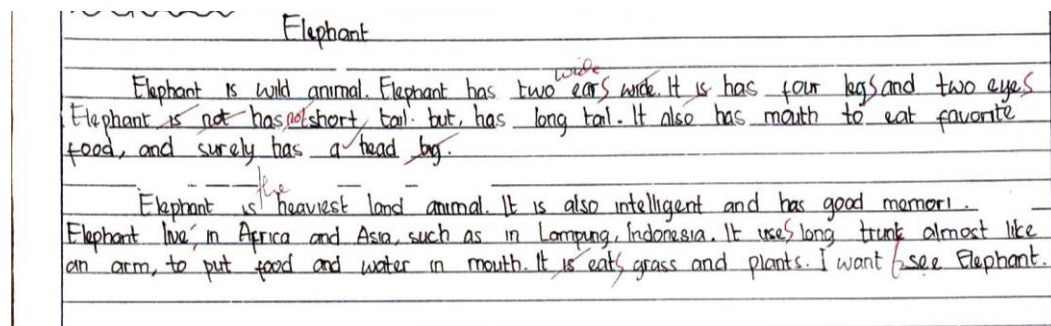 Elephant
wide
Elephant is wild animal. Elephant has two ears wide. It is has four legs and two eyes
Elephant is not has not short, tail. but, has long tail. It also has mouth to eat favorite
food, and surely has a head big.
the
Elephant is heaviest land animal. It is also intelligent and has good memori.
Elephant live, in Africa and Asia, such as in Lampung, Indonesia. It uses long trunk almost like
an arm, to put food and water in mouth. It is eats grass and plants. I want to see Elephant.